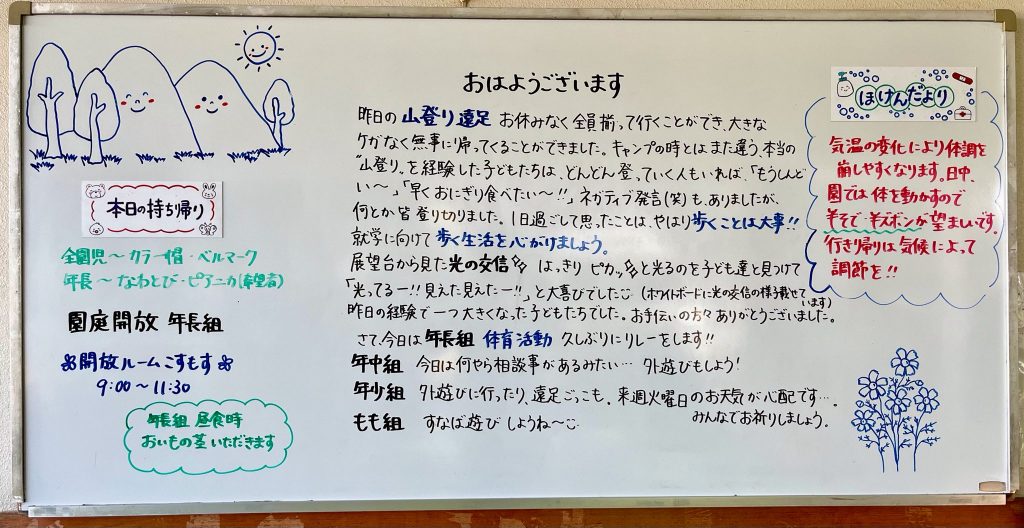 本日の持ち帰り
全園児～カラー帽・ベルマーク
年長～なわとび・ピアニカ(希望者)
園庭開放 年長組
開放ルームこすもす
9:00～11:30
年長組 昼食時
おいもの茎いただきます
おはようございます
昨日の 山登り遠足 お休みなく全員揃って行くことができ、大きな
ケガなく無事に帰ってくることができました。キャンプの時とはまた違う、本当の
"山登り"を経験した子どもたちは、どんどん登っていく人もいれば、「もうしんど
い～」「早くおにぎり食べたい～!!」ネガティブ発言(笑)も、ありましたが、
何とか皆登り切りました。1日過ごして思ったことは、やはり歩くことは大事!!
就学に向けて 歩く生活を心がけましょう。
展望台から見た光の交信 はっきり ピカッ と光るのを子ども達と見つけて
「光ってるー!!見えた見えたー!!」と大喜びでした (ホワイトボードに光の交信の様子載せて
います)
昨日の経験で一つ大きくなった子どもたちでした。お手伝いの方々ありがとうございました。
さて、今日は 年長組 体育活動 久しぶりにリレーをします!!
年中組 今日は何やら相談事があるみたい… 外遊びもしよう!
年少組 外遊びに行ったり、遠足ごっこも。来週火曜日のお天気が心配です…。
みんなでお祈りしましょう。
もも組 すなば遊び しようね～
ほけんだより
気温の変化により体調を
崩しやすくなります。日中、
園では体を動かすので
半そで・半ズボンが望ましいです。
行き帰りは気候によって
調節を!!